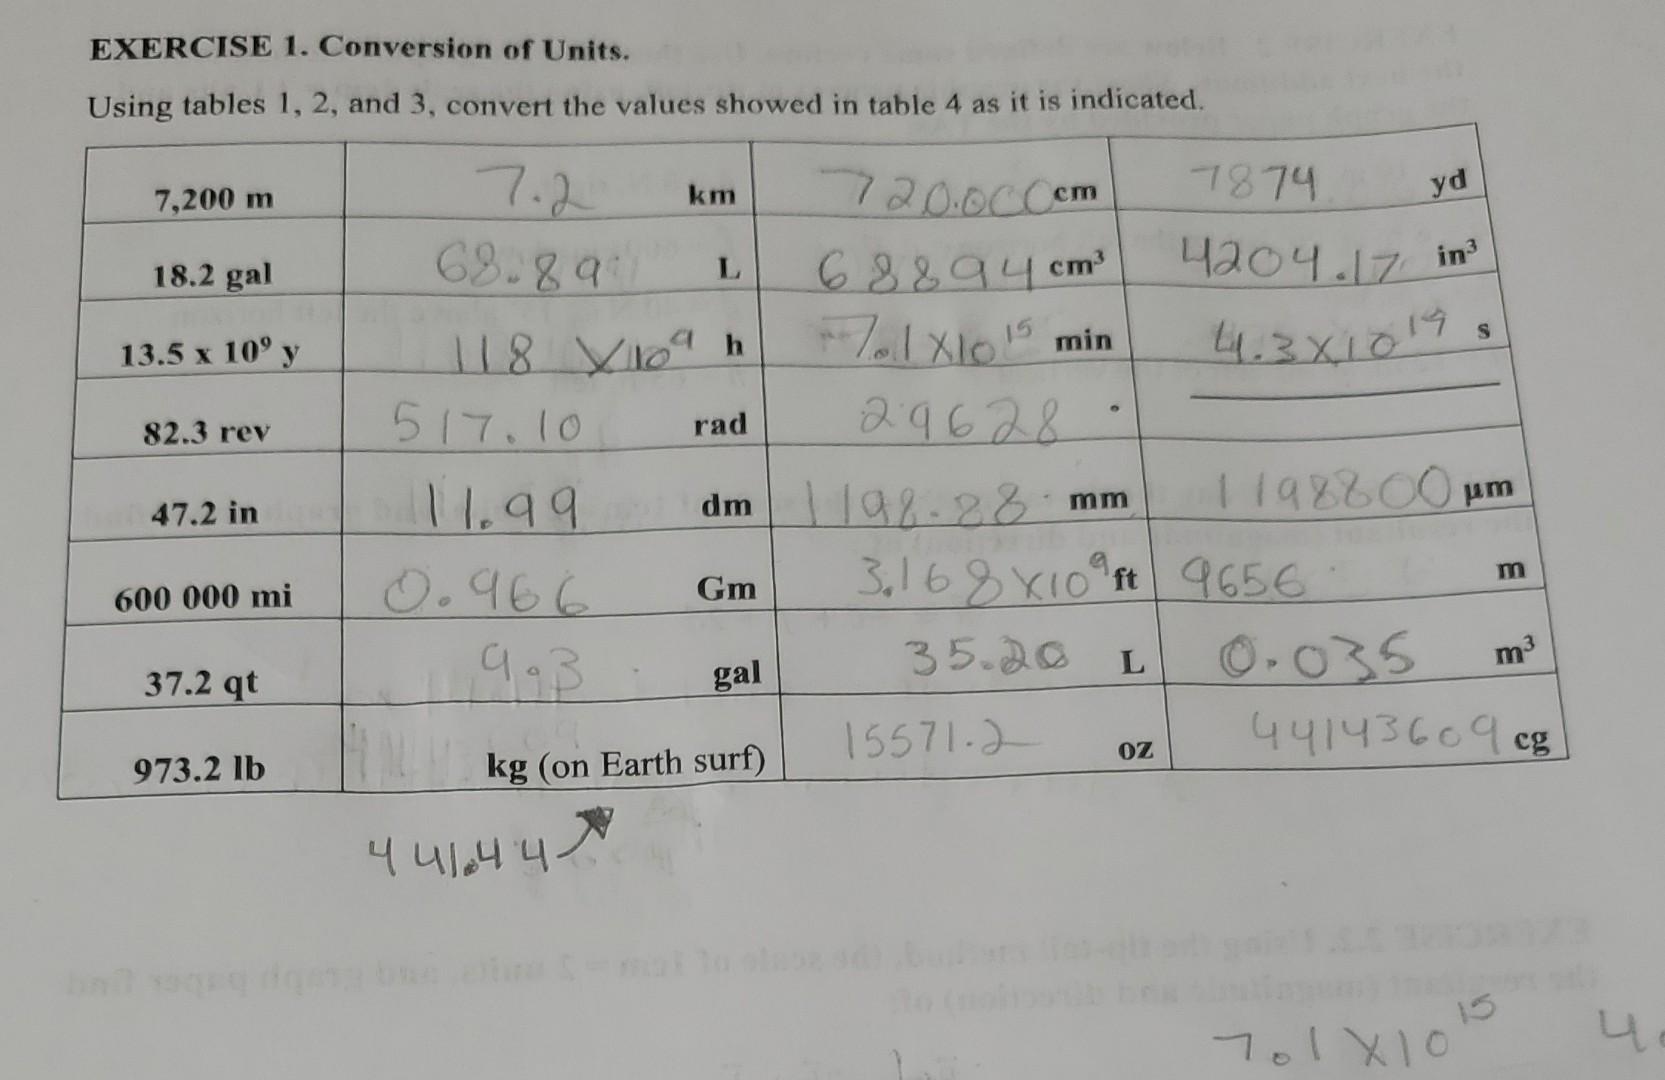 EXERCISE 1. Conversion of Units.
Using tables 1, 2, and 3, convert the values showed in table 4 as it is indicated.
7,200 m 7.2 km 720.000 cm 7874 yd
18.2 gal 68.89 L 68894 cm³ 4204.17 in³
13.5 x 10⁹ y 118 X10⁹ h 7.1X10¹⁵ min 4.3X10¹⁹ s
82.3 rev 517.10 rad 29628 °
47.2 in 11.99 dm 1198.88 mm 1198800 μm
600 000 mi 0.966 Gm 3.168X10⁹ ft 9656 m
37.2 qt 9.3 gal 35.20 L 0.035 m³
973.2 lb kg (on Earth surf) 15571.2 oz 44143609 cg
441.44
7.1X10¹⁵ 4.